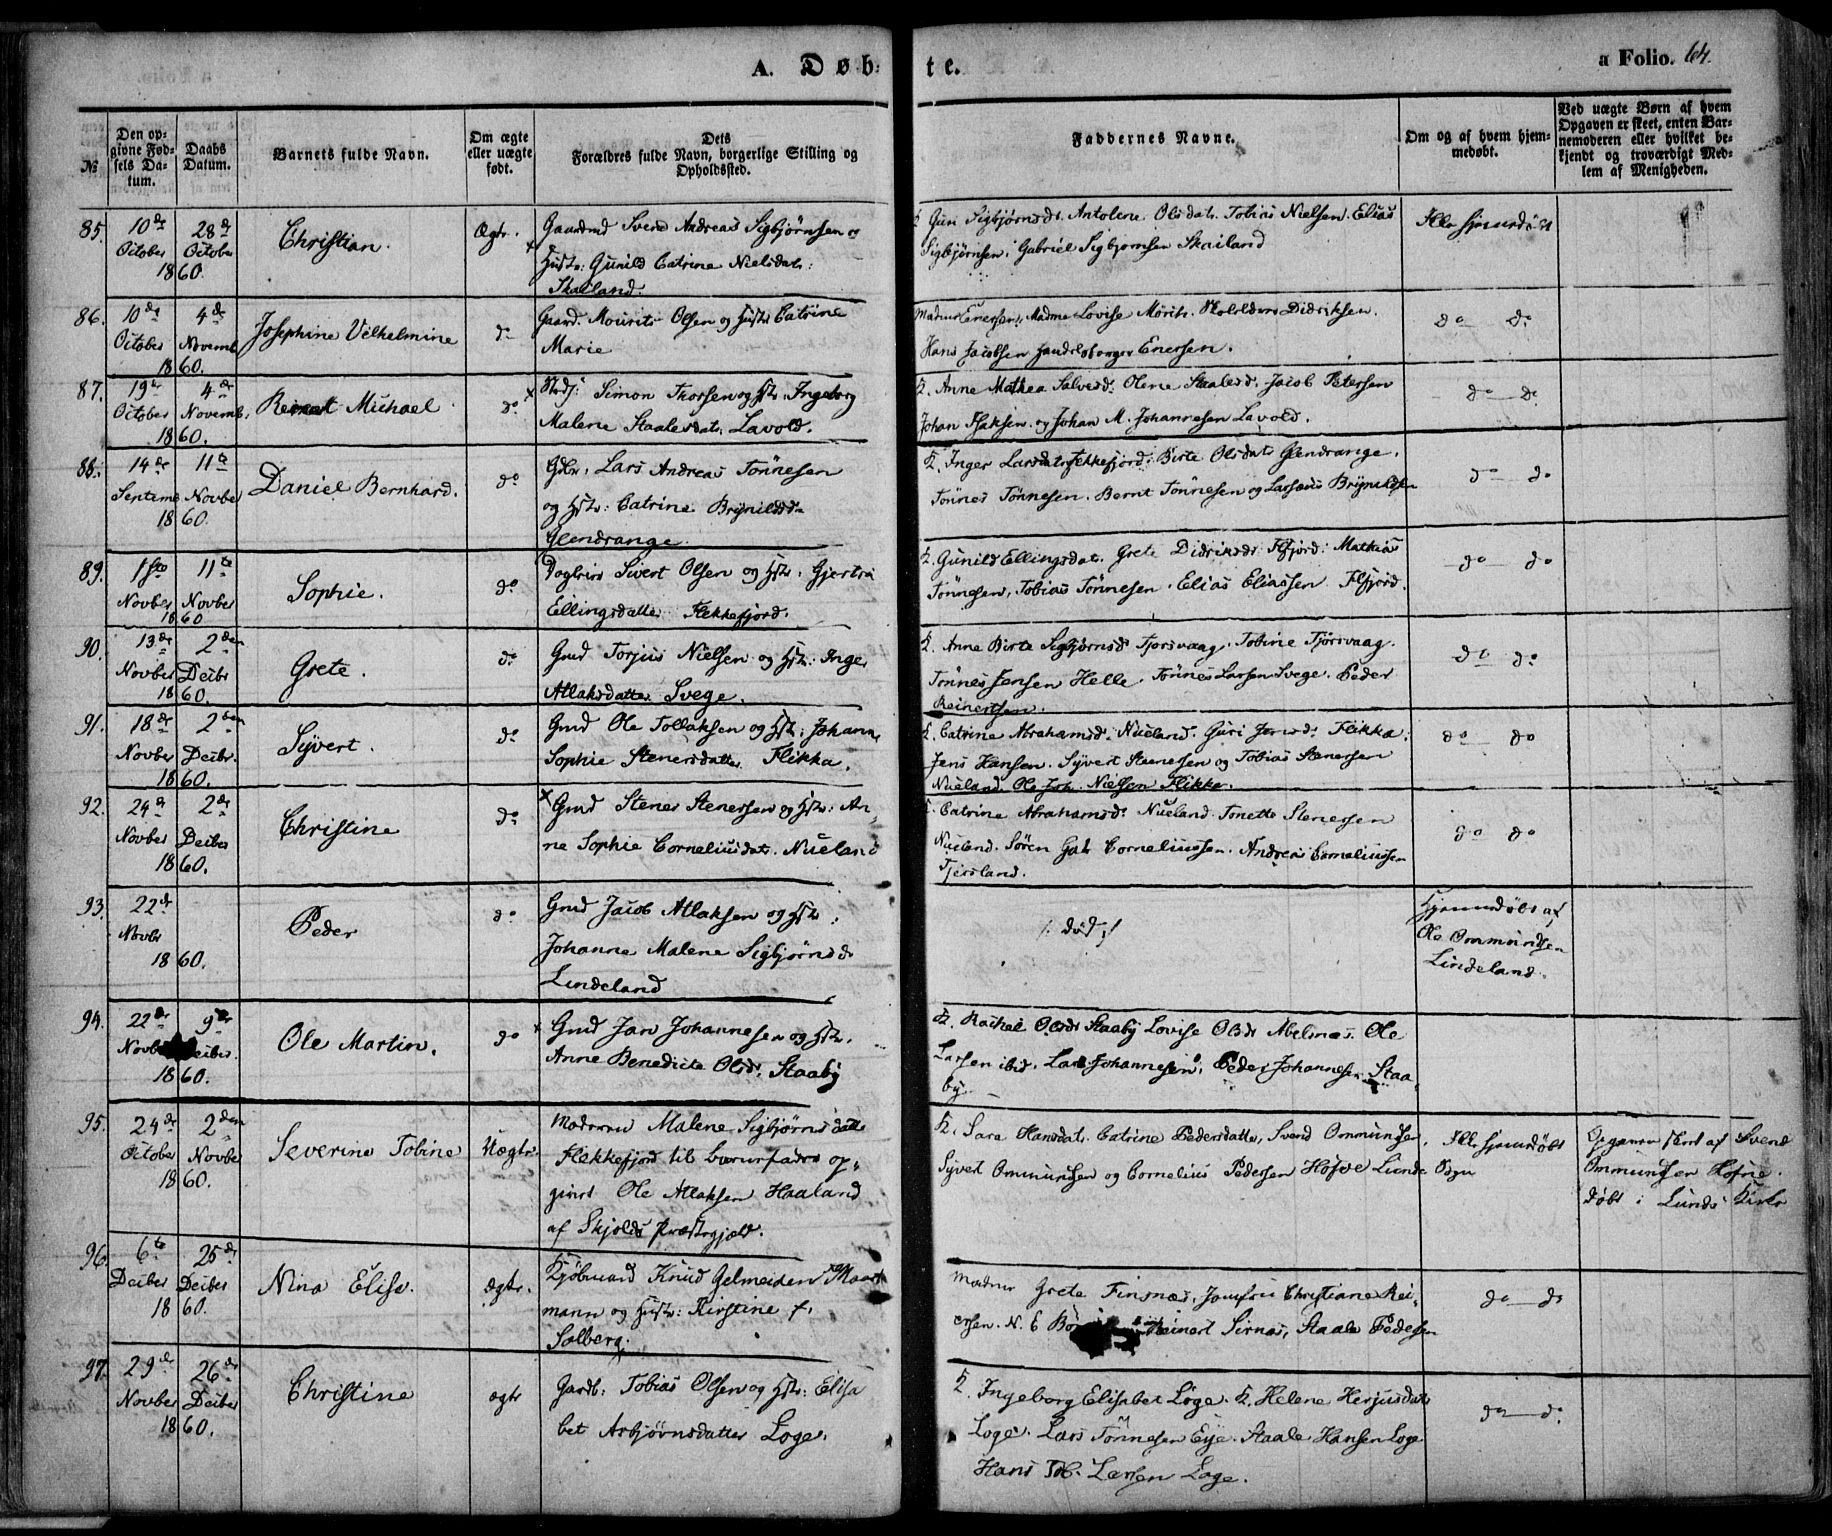 A. Døb-
te.
a Folio. 64.
No
Den op-
givne Fød-
sels Da-
tum.
Daabs
Datum.
Barnets fulde Navn.
Om ægte
eller uægte
født.
Dets
Forældres fulde Navn, borgerlige Stilling og
Opholdssted.
Faddernes Navne.
Om og af hvem hjem-
medøbt.
Ved uægte Børn af hvem
Opgaven er skeet, enten Bar-
nemoderen eller hvilket be-
kjendt og troværdigt Med-
lem af Menigheden.
85.
10de
October
1860.
28de
October
Christian.
Ægte.
Gaardmd Svend Andreas Sigbjørnsen og
Hustr: Gunild Catrine Nielsdatr:
Skailand.
K Guri Sigbjørnsdr. Antolene Olsdatr. Tobias Nielsen. Elias
Sigbjørnsen. Gabriel Sigbjørnsen Skailand
Ikke hjemmedøbt
86.
10de
October
1860.
4de
Novemb
Josephine Vilhelmine
do
Gaard. Mourits Olsen og Hustr Catrine
Marie
Madme Enersen, Madme Lovise Mörits. Didriksen.
Hans Jacobsen Handelsborger Enersen.
do do
87.
19de
October
1860.
4de
Novemb.
Reinert Michael
do
Simon Thorsen og Hstr. Ingeborg
Malene Staalesdatr. Lavold.
K. Anne Mathea Salvesd. Olene Staalesd. Jacob Petersen
Johan Isaksen. og Johan M. Johannesen Lavold.
do do
88.
14de
Septemb
1860.
11te
Novber
Daniel Bernhard.
do
Lars Andreas Tönnesen
og Hstr: Catrine Brynildsd
Glendrange.
K. Inger Larsdatr Flekkefjord. Birte Olsdatr Glendrange.
Tönnes Tönnesen. Bernt Tönnesen og Larsæus Brynildsen
do do
89.
1ste
Novber
1860
11te
Novber
Sophie.
do
Sivert Olsen og Hstr. Gjertru
Ellingsdatter Flekkefjord.
K. Gunild Ellingsdatr. Grete Didriksdr Flfjord. Mathias
Tönnesen, Tobias Tönnesen. Elias Eliassen Flfjord.
do do
90.
13de
Novber
1860.
2den
Decbr
Grete.
do
Gmd Torjus Nielsen og Hstr: Inger
Atlaksdatter Svege.
K. Anne Birte Sigbjørnsd Tjorsvaag. Tobine Tjörsvaag.
Tönnes Jensen Helle. Tönnes Larsen Svege. Peder
Reinertsen.
do do
91.
18de
Novber
1860.
2den
Decbr.
Syvert.
do
Gmd Ole Tollaksen og Hstr: Johanne
Sophie Stenersdatter Flikka.
K. Catrine Abrahamsd. Nueland. Guri Jensd. Flikka.
Jens Hansen. Syvert Stenersen og Tobias Stenersen
Nueland. Ole Joh. Nielsen Flikka.
do do
92.
24de
Novber
1860.
2de
Decber
Christine
do
Gmd Stener Stenersen og Hstr: An-
ne Sophie Corneliusdatr. Nueland
K. Catrine Abrahamsdr Nueland. Tonette Stenersen
Nueland. Sören Gab Corneliussen. Andreas Corneliussen
Tjersland.
do do
93.
22de
Novbr
1860.
Peder
do
Gmd Jacob Atlaksen og Hstr:
Johanne Malene Sigbjørnsdr
Lindeland
/: død :/
Hjemmedøbt af
Ole Ommundsen
Lindeland.
94.
22de
Novber
1860.
9de
Decber.
Ole Martin.
do
Gmd Jan Johannesen og Hstr.
Anne Benedicte Olsd. Staaby
K. Rachel Olsdr Staaby Lovise Olsdr Abelsnæs. Ole
Larsen ibid. Lars Johannesen. Peder Johannesen Staa-
by.
95.
24de
October
1860.
2den
Novber
Severine Tobine
Uægte.
Moderen Malene Sigbjørnsdatter
Flekkefjord til Barnefader op-
givet Ole Atlaksen Haaland
af Skjolds Præstegjæld.
K. Sara Hansdatr. Catrine Pedersdatter, Svend Ommundsen,
Syvert Ommundsen og Cornelius Pedersen Hofve Lunde
Sogn
Ikke hjemmedøbt
Opgaven skeet af Svend
Ommundsen Hofve.
døbt i Lunds Kirke
96.
6te
Decber
1860.
25de
Decber
Nina Elise.
ægte.
Kjøbmand Knud Gelmeiden Maar-
mann og Hustr: Kirstine f.
Solberg.
Madme Grete Finsnæs, Jomfru Christiane Rei-
ersen. N. E Reinert Sirnæs, Staale Pedersen
do do
97.
29de
Novber
1860.
26de
Decber
Christine
ægte
Gaardb: Tobias Olsen og Hstr: Elisa
bet Asbjørnsdatter Loge.
K. Ingeborg Elisabet Loge. K. Helene Herjusdatr
Loge. Lars Tönnesen Eye. Staale Hansen Loge
Hans Tob. Larsen Loge.
do do